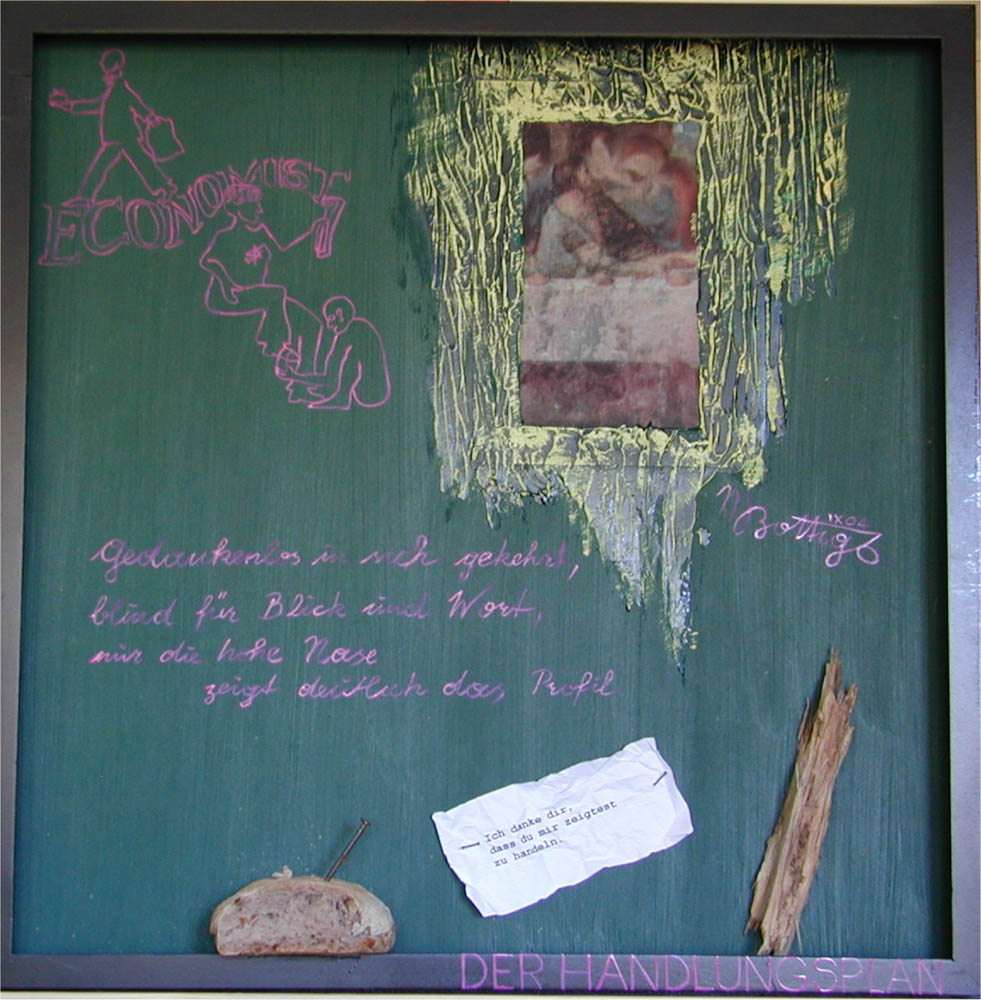 ECONOMIST
Bottig
IX 02
Gedankenlos in sich gekehrt,
blind für Blick und Wort,
nur die hohe Nase
zeigt deutlich das Profil.
Ich danke dir,
dass du mir zeigtest
zu handeln.
DER HANDLUNGSPLAN